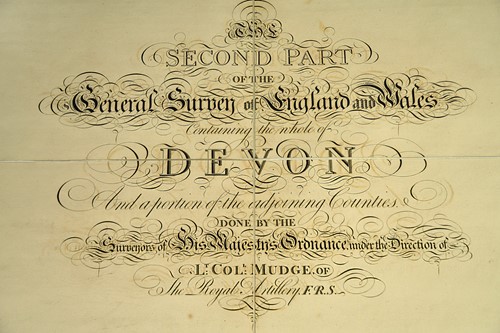 THE
SECOND PART
OF THE
General Survey of England and Wales
Containing the whole of
DEVON
And a portion of the adjoining Counties.
DONE BY THE
Surveyors of His Majesty's Ordnance, under the Direction of
Lt. Col. MUDGE, OF
The Royal Artillery, F.R.S.